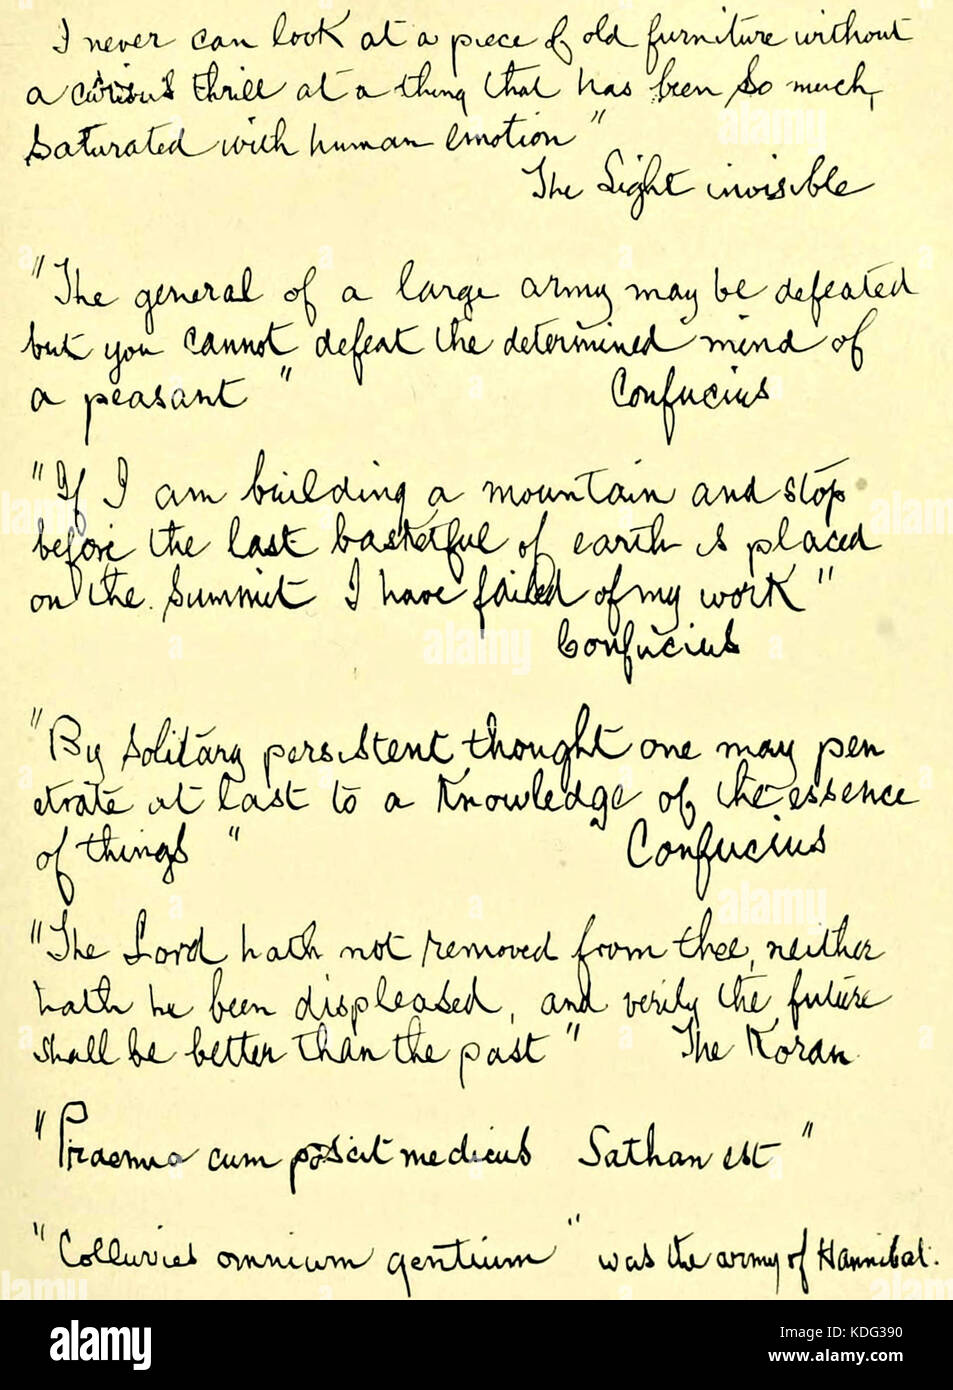 I never can look at a piece of old furniture without
a curious thrill at a thing that has been so much
saturated with human emotion"
The Light invisible
"The general of a large army may be defeated
but you cannot defeat the determined mind of
a peasant" Confucius
"If I am building a mountain and stop
before the last basketful of earth is placed
on the summit I have failed of my work"
Confucius
"By solitary persistent thought one may pen
etrate at last to a knowledge of the essence
of things" Confucius
"The Lord hath not removed from thee, neither
hath he been displeased, and verily the future
shall be better than the past" The Koran
"Praemia cum poscit medicus Sathan est"
"Colluvies omnium gentium" was the army of Hannibal.
alamy
Image ID: KDG390
www.alamy.com